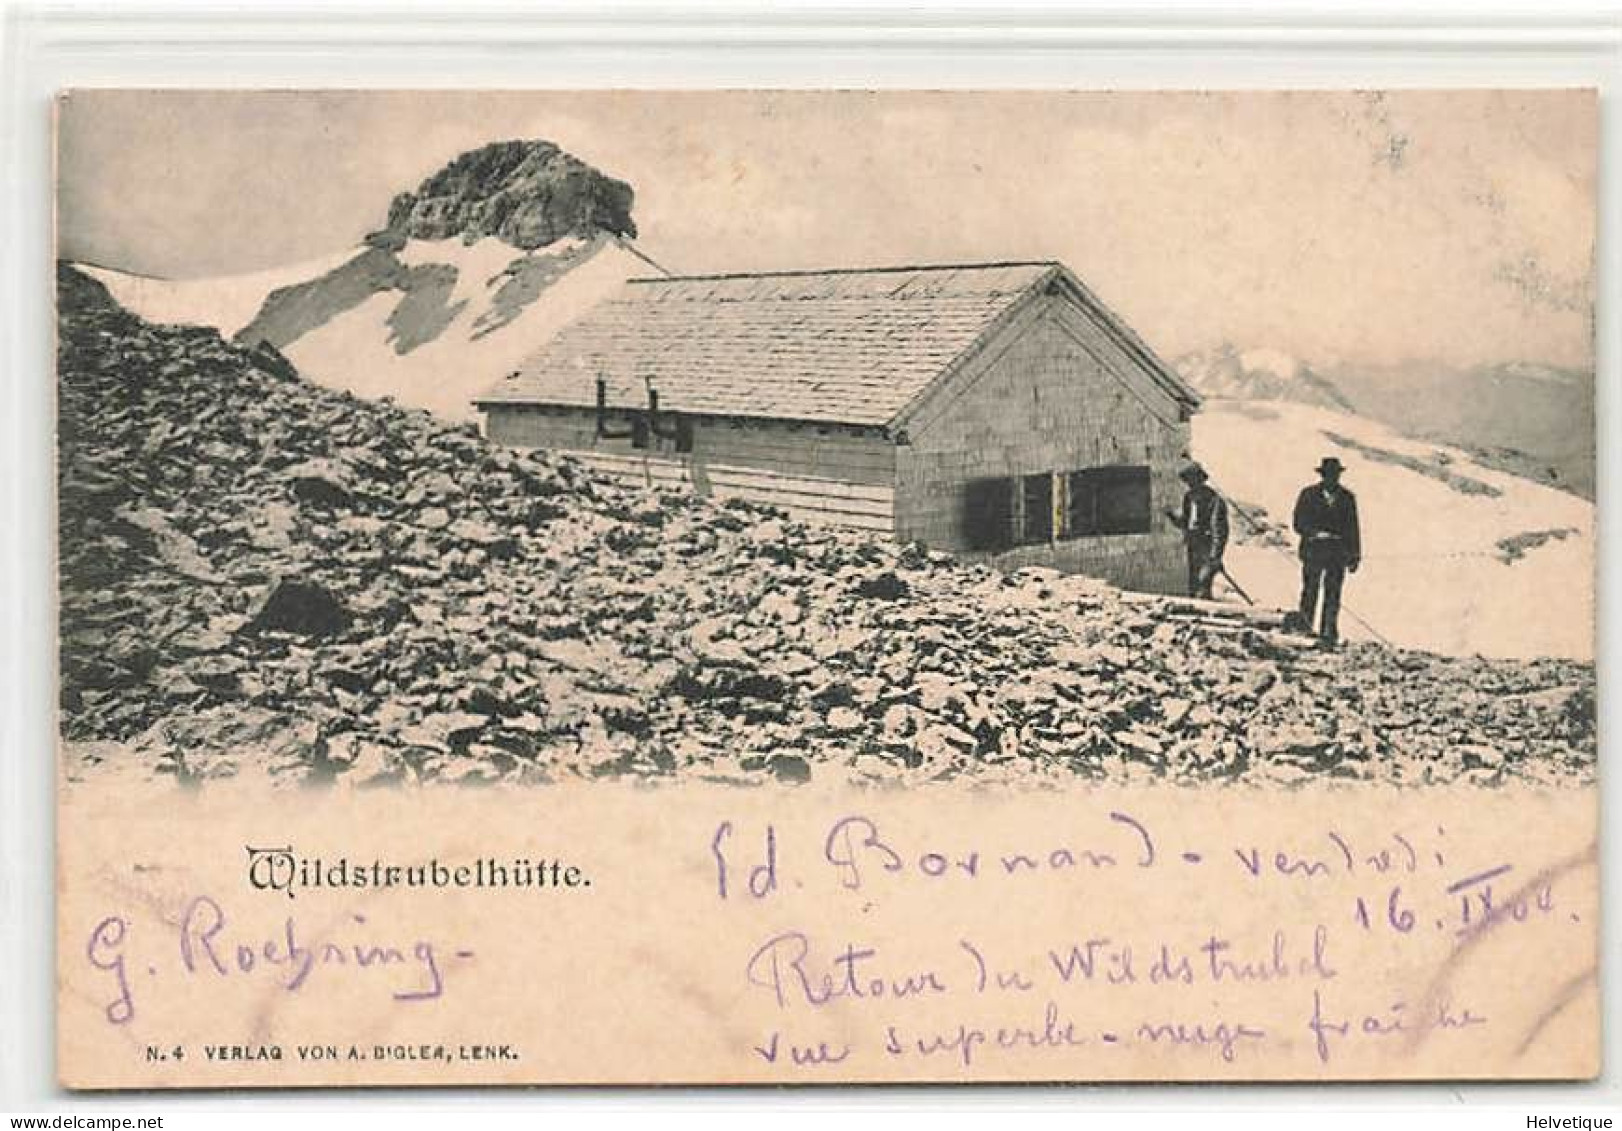 Wildstrubelhütte.
Ed. Bornand - vendredi
16. IX 04.
G. Roehring -
Retour du Wildstrubel
vue superbe - neige fraîche
N. 4 VERLAG VON A. BIGLER, LENK.
delcampe.net
Helvetique